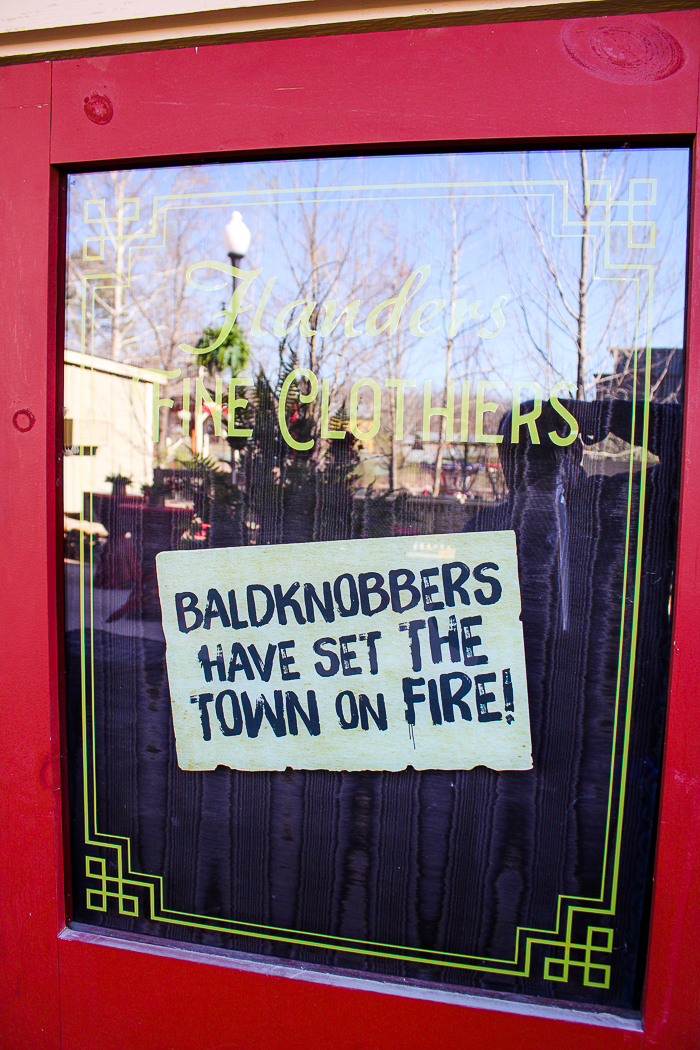 Flanders
Fine Clothiers
BALDKNOBBERS
HAVE SET THE
TOWN ON FIRE!